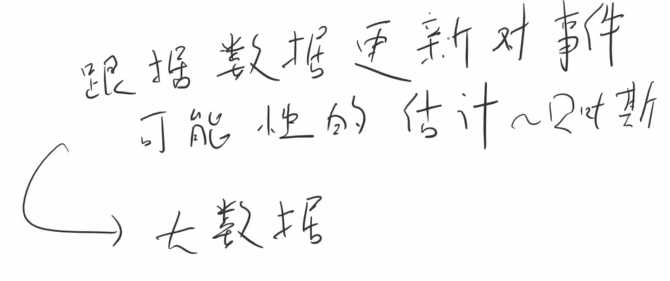 跟据数据更新对事件
可能性的估计~贝叶斯
大数据